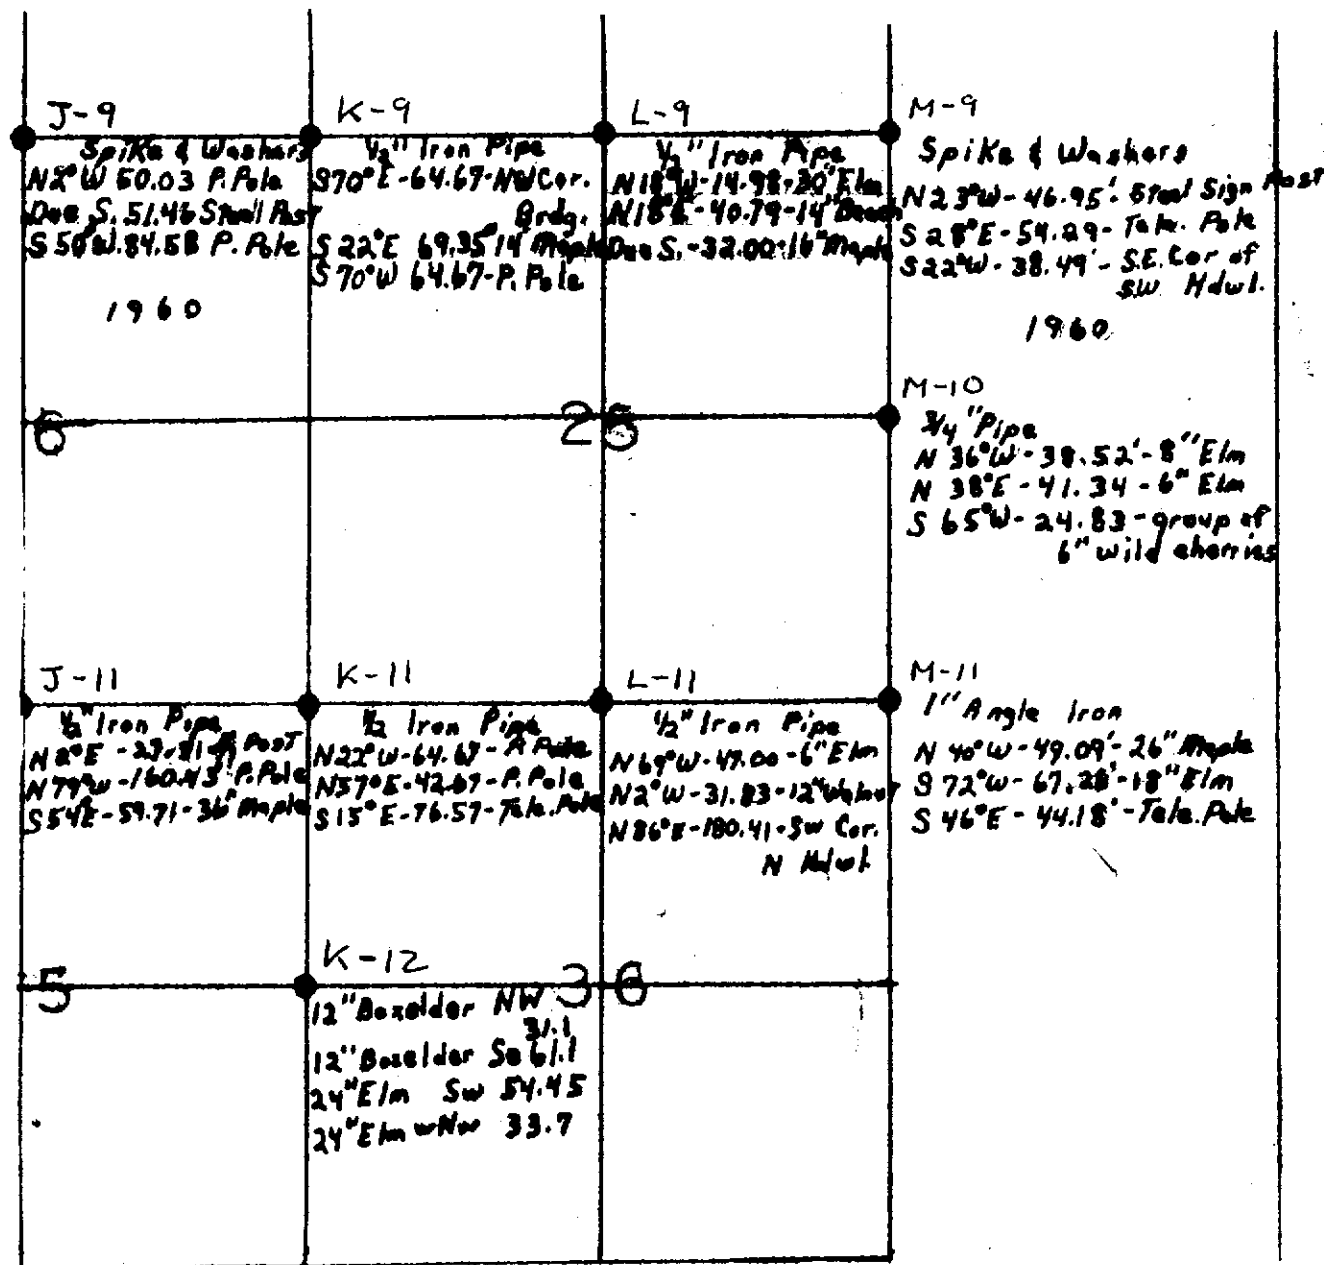 J-9
Spike & Washers
N2°W 50.03 P. Pole
Due S. 51.46 Steel Post
S 50°W. 84.58 P. Pole
1960
K-9
1/2" Iron Pipe
S70°E-64.67-NW Cor.
Brdg.
S 22°E 69.35 14" Maple
S 70°W 64.67-P. Pole
L-9
1/2" Iron Pipe
N18°W-14.98-30" Elm
N18°E-40.79-14" Beech
Due S.-32.00-16" Maple
M-9
Spike & Washers
N 23°W-46.95'-Steel Sign Post
S 28°E-54.29-Tele. Pole
S 22°W-38.49'-S.E. Cor of
S.W. Hdwl.
1960
6
25
M-10
3/4" Pipe
N 36°W-38.52'-8" Elm
N 38°E-41.34-6" Elm
S 65°W-24.83-group of
6" wild cherries
J-11
1/2" Iron Pipe
N 2°E Post
N 79°W-160.43' P. Pole
S 54°E-59.71-36" Maple
K-11
1/2 Iron Pipe
N22°W-64.67-P. Pole
N57°E-42.67-P. Pole
S 15°E-76.57-Tele. Pole
L-11
1/2" Iron Pipe
N 69°W-47.00-6" Elm
N 2°W-31.83-12" Walnut
N 86°E-180.41-SW Cor.
N Hdwl.
M-11
1" Angle Iron
N 40°W-49.09'-26" Maple
S 72°W-67.28'-18" Elm
S 46°E-44.18'-Tele. Pole
5
36
K-12
12" Boxelder NW
31.1
12" Boxelder Se 61.1
24" Elm Sw 54.45
24" Elm wNw 33.7